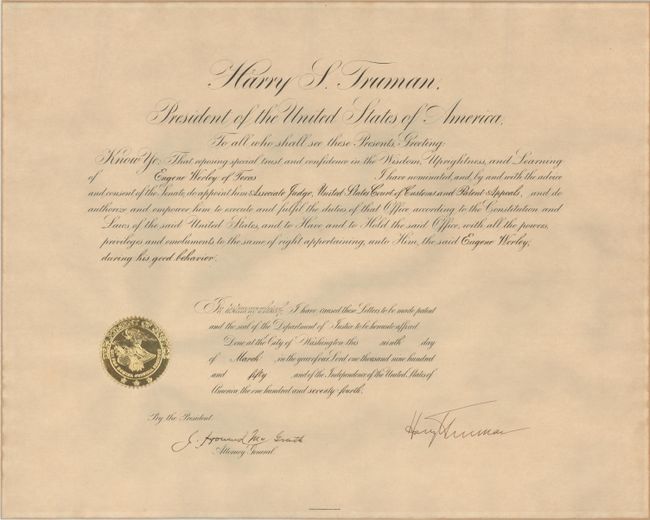 Harry S. Truman,
President of the United States of America,
To all who shall see these Presents, Greeting:
Know Ye; That reposing special trust and confidence in the Wisdom, Uprightness, and Learning
of Eugene Worley of Texas I have nominated, and, by and with the advice
and consent of the Senate, do appoint him Associate Judge, United States Court of Customs and Patent Appeals, and do
authorize and empower him to execute and fulfil the duties of that Office according to the Constitution and
Laws of the said United States, and to Have and to Hold the said Office, with all the powers,
privileges and emoluments to the same of right appertaining, unto Him, the said Eugene Worley,
during his good behavior.
In testimony whereof, I have caused these Letters to be made patent
and the seal of the Department of Justice to be hereunto affixed.
Done at the City of Washington this ninth day
of March, in the year of our Lord one thousand nine hundred
and fifty and of the Independence of the United States of
America the one hundred and seventy-fourth.
By the President:
J. Howard McGrath
Attorney General.
Harry S Truman